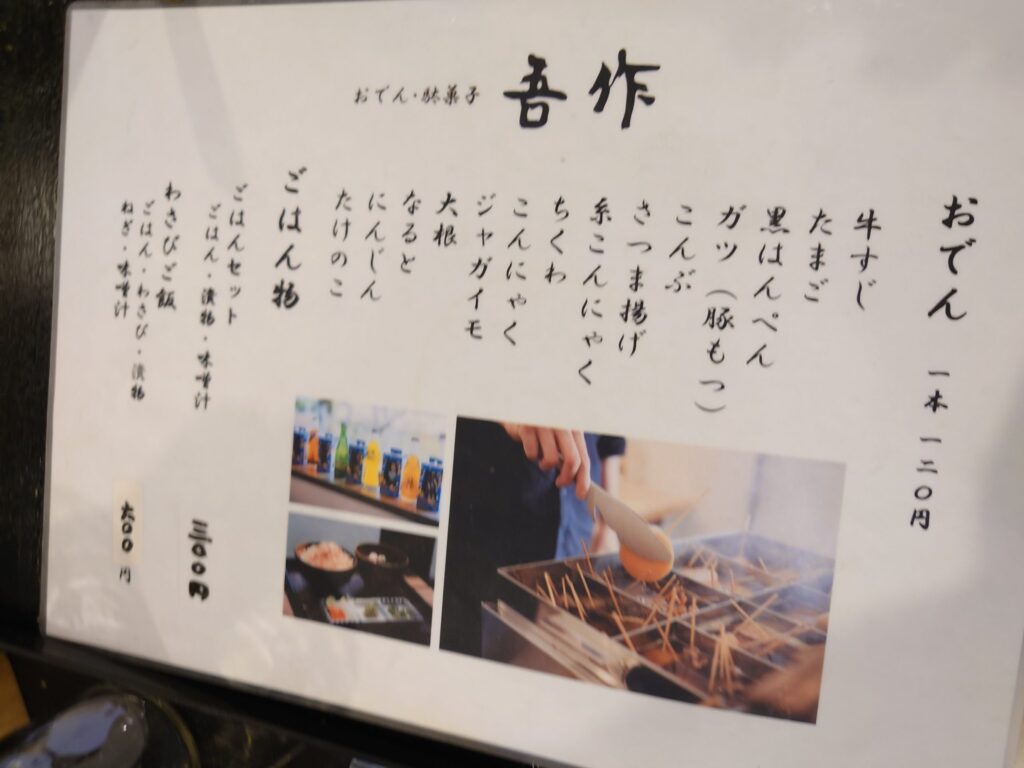 おでん・駄菓子 吾作
おでん 一本 一二〇円
牛すじ
たまご
黒はんぺん
ガツ（豚もつ）
こんぶ
さつま揚げ
糸こんにゃく
ちくわ
こんにゃく
ジャガイモ
大根
なると
にんじん
たけのこ
ごはん物
ごはんセット
ごはん・漬物・味噌汁 三〇〇円
わさびご飯
ごはん・わさび・漬物
ねぎ・味噌汁 六〇〇円